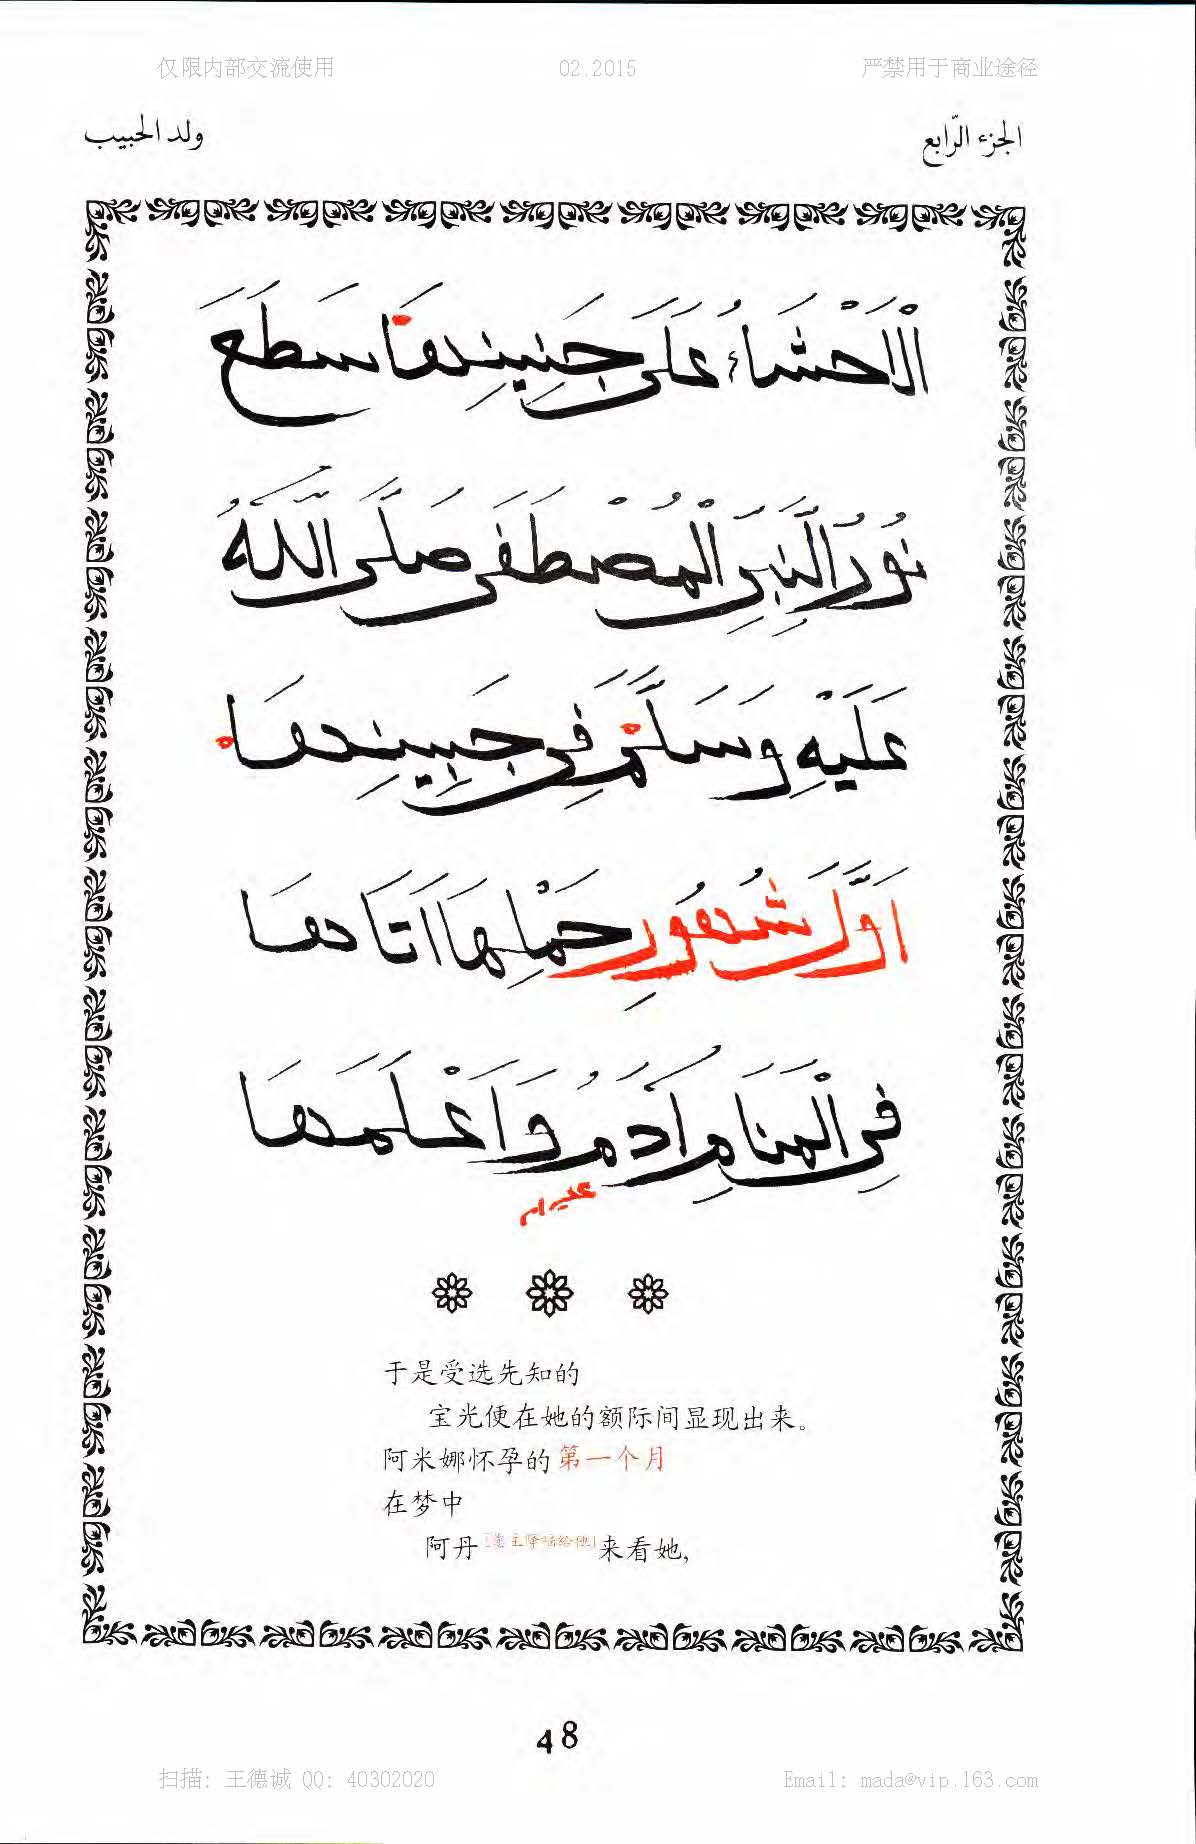 仅限内部交流使用 02.2015 严禁用于商业途径
الجزء الرّابع ولد الحبيب
اَلْاَحْشَاءُ عَلَى جَنِينِهَا سَطَعَ
نُورُ النَّبِيِّ الْمُصْطَفَى صَلَّى اللَّهُ
عَلَيْهِ وَسَلَّمَ فِى جَبِينِهَا
اَوَّلَ شُهُورِ حَمْلِهَا اَتَاهَا
فِى الْمَنَامِ اٰدَمُ وَاَعْلَمَهَا
于是受选先知的
宝光便在她的额际间显现出来。
阿米娜怀孕的第一个月
在梦中
阿丹[惠主降福给他]来看她,
48
扫描: 王德诚 QQ: 40302020 Email: mada@vip.163.com